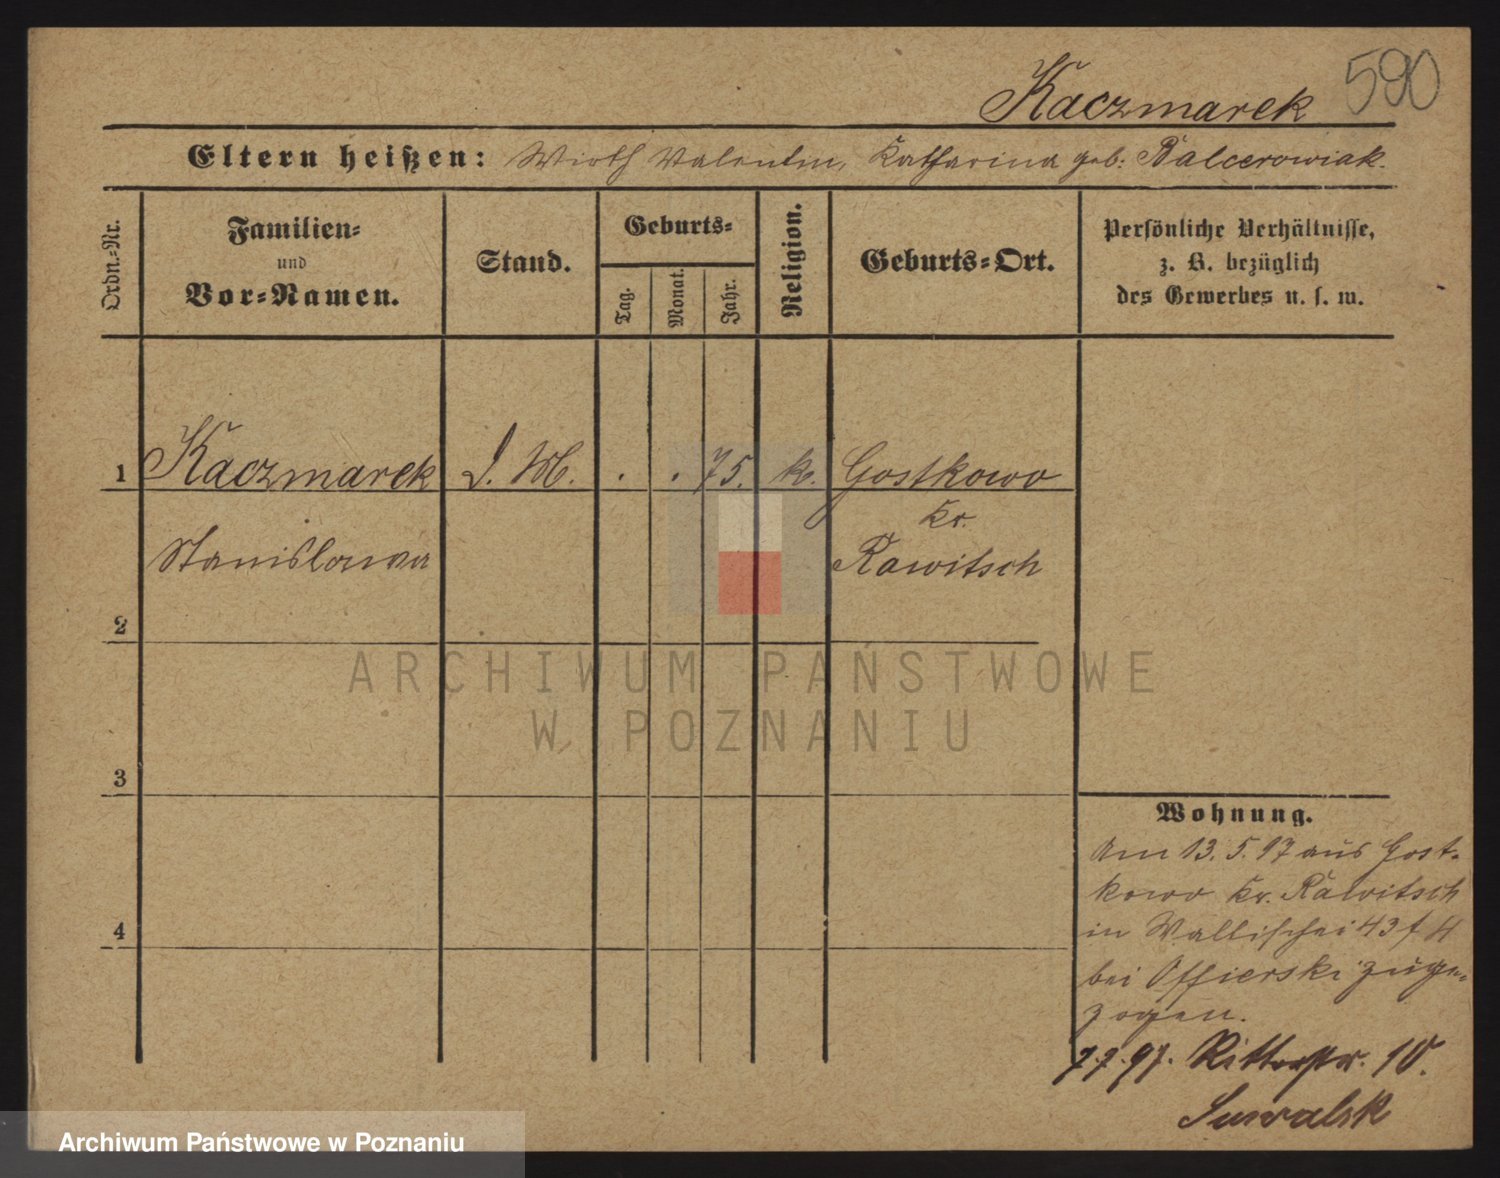 Kaczmarek 590
Eltern heißen: Wirth Valentin, Katharina geb: Balcerowiak.
Ordn.-Nr.
Familien-
und
Vor-Namen.
Stand.
Geburts-
Tag.
Monat.
Jahr.
Religion.
Geburts-Ort.
Persönliche Verhältnisse,
z. B. bezüglich
des Gewerbes u. s. w.
1 Kaczmarek D. M. . . 75. k. Gostkowo
Kr.
Stanislawa Rawitsch
2
3
4
Wohnung.
Am 13. 5. 97 aus Gost-
kowo Kr. Rawitsch
in Wallischei 43
bei Offierski zuge-
zogen.
7.7.97. Ritterstr. 10.
Suwalsk
ARCHIWUM PAŃSTWOWE
W POZNANIU
Archiwum Państwowe w Poznaniu